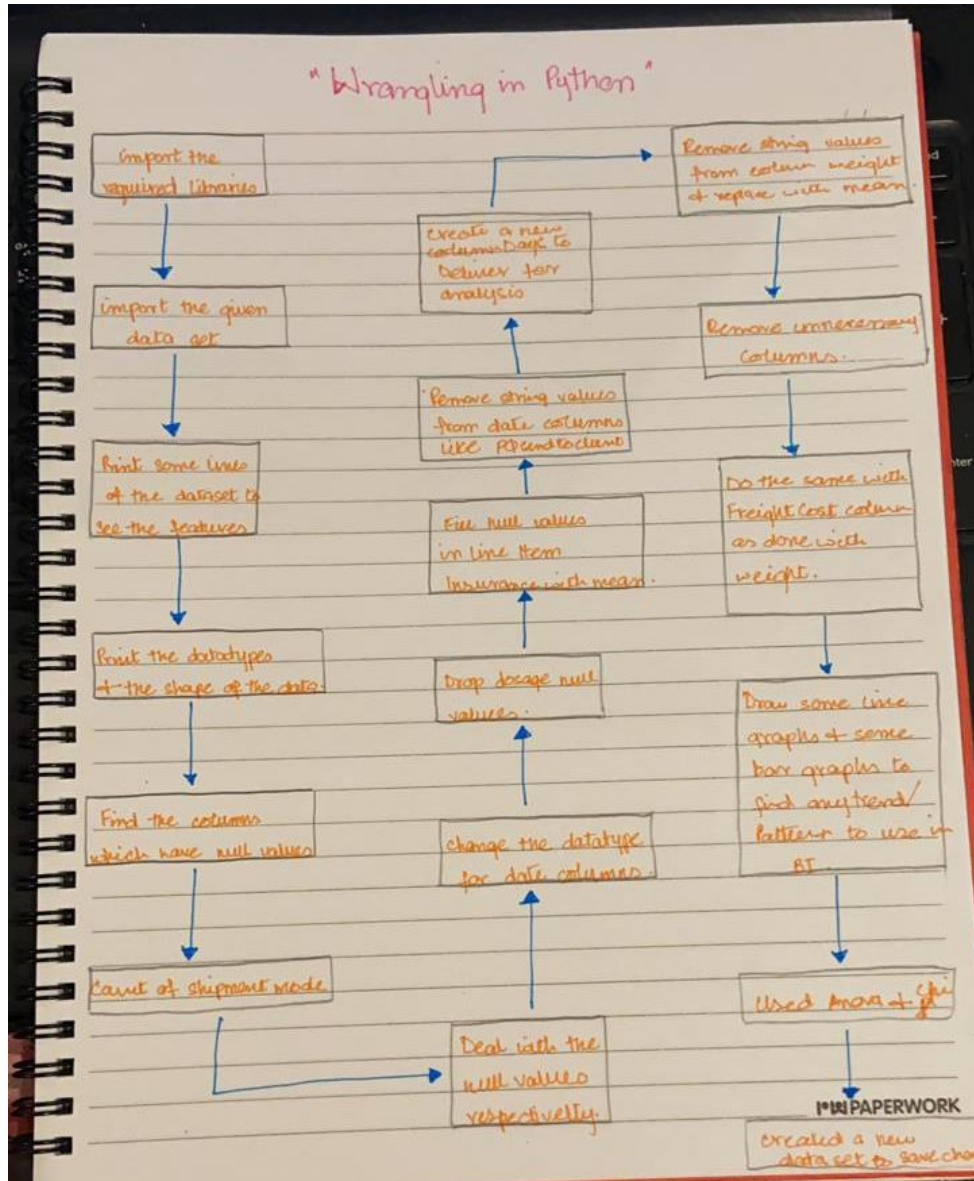 "Wrangling in Python"
import the
required libraries
import the given
data set
Print some lines
of the dataset to
see the features
Print the datatypes
+ the shape of the data.
Find the columns
which have null values
Count of shipment mode
Deal with the
null values
respectivelly.
change the datatype
for date columns.
Drop dosage null
values.
Fill null values
in Line Item
Insurance with mean.
Remove string values
from date columns
like PQ
create a new
column Days to
Deliver for
analysis
Remove string values
from column weight
+ replace with mean.
Remove unnecessary
columns.
Do the same with
Freight Cost column
as done with
weight.
Draw some line
graphs + some
bar graphs to
find any trend/
Pattern to use in
BI
Used Anova + chi
PAPERWORK
created a new
data set to save